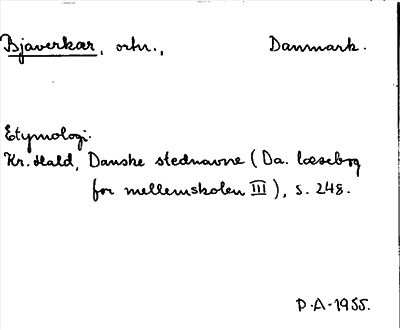 Bjaverkar, ortn., Danmark.
Etymologi.
Kr. Hald, Danske stednavne (Da. læsebog
for mellemskolen III), s. 248.
P.A-1955.